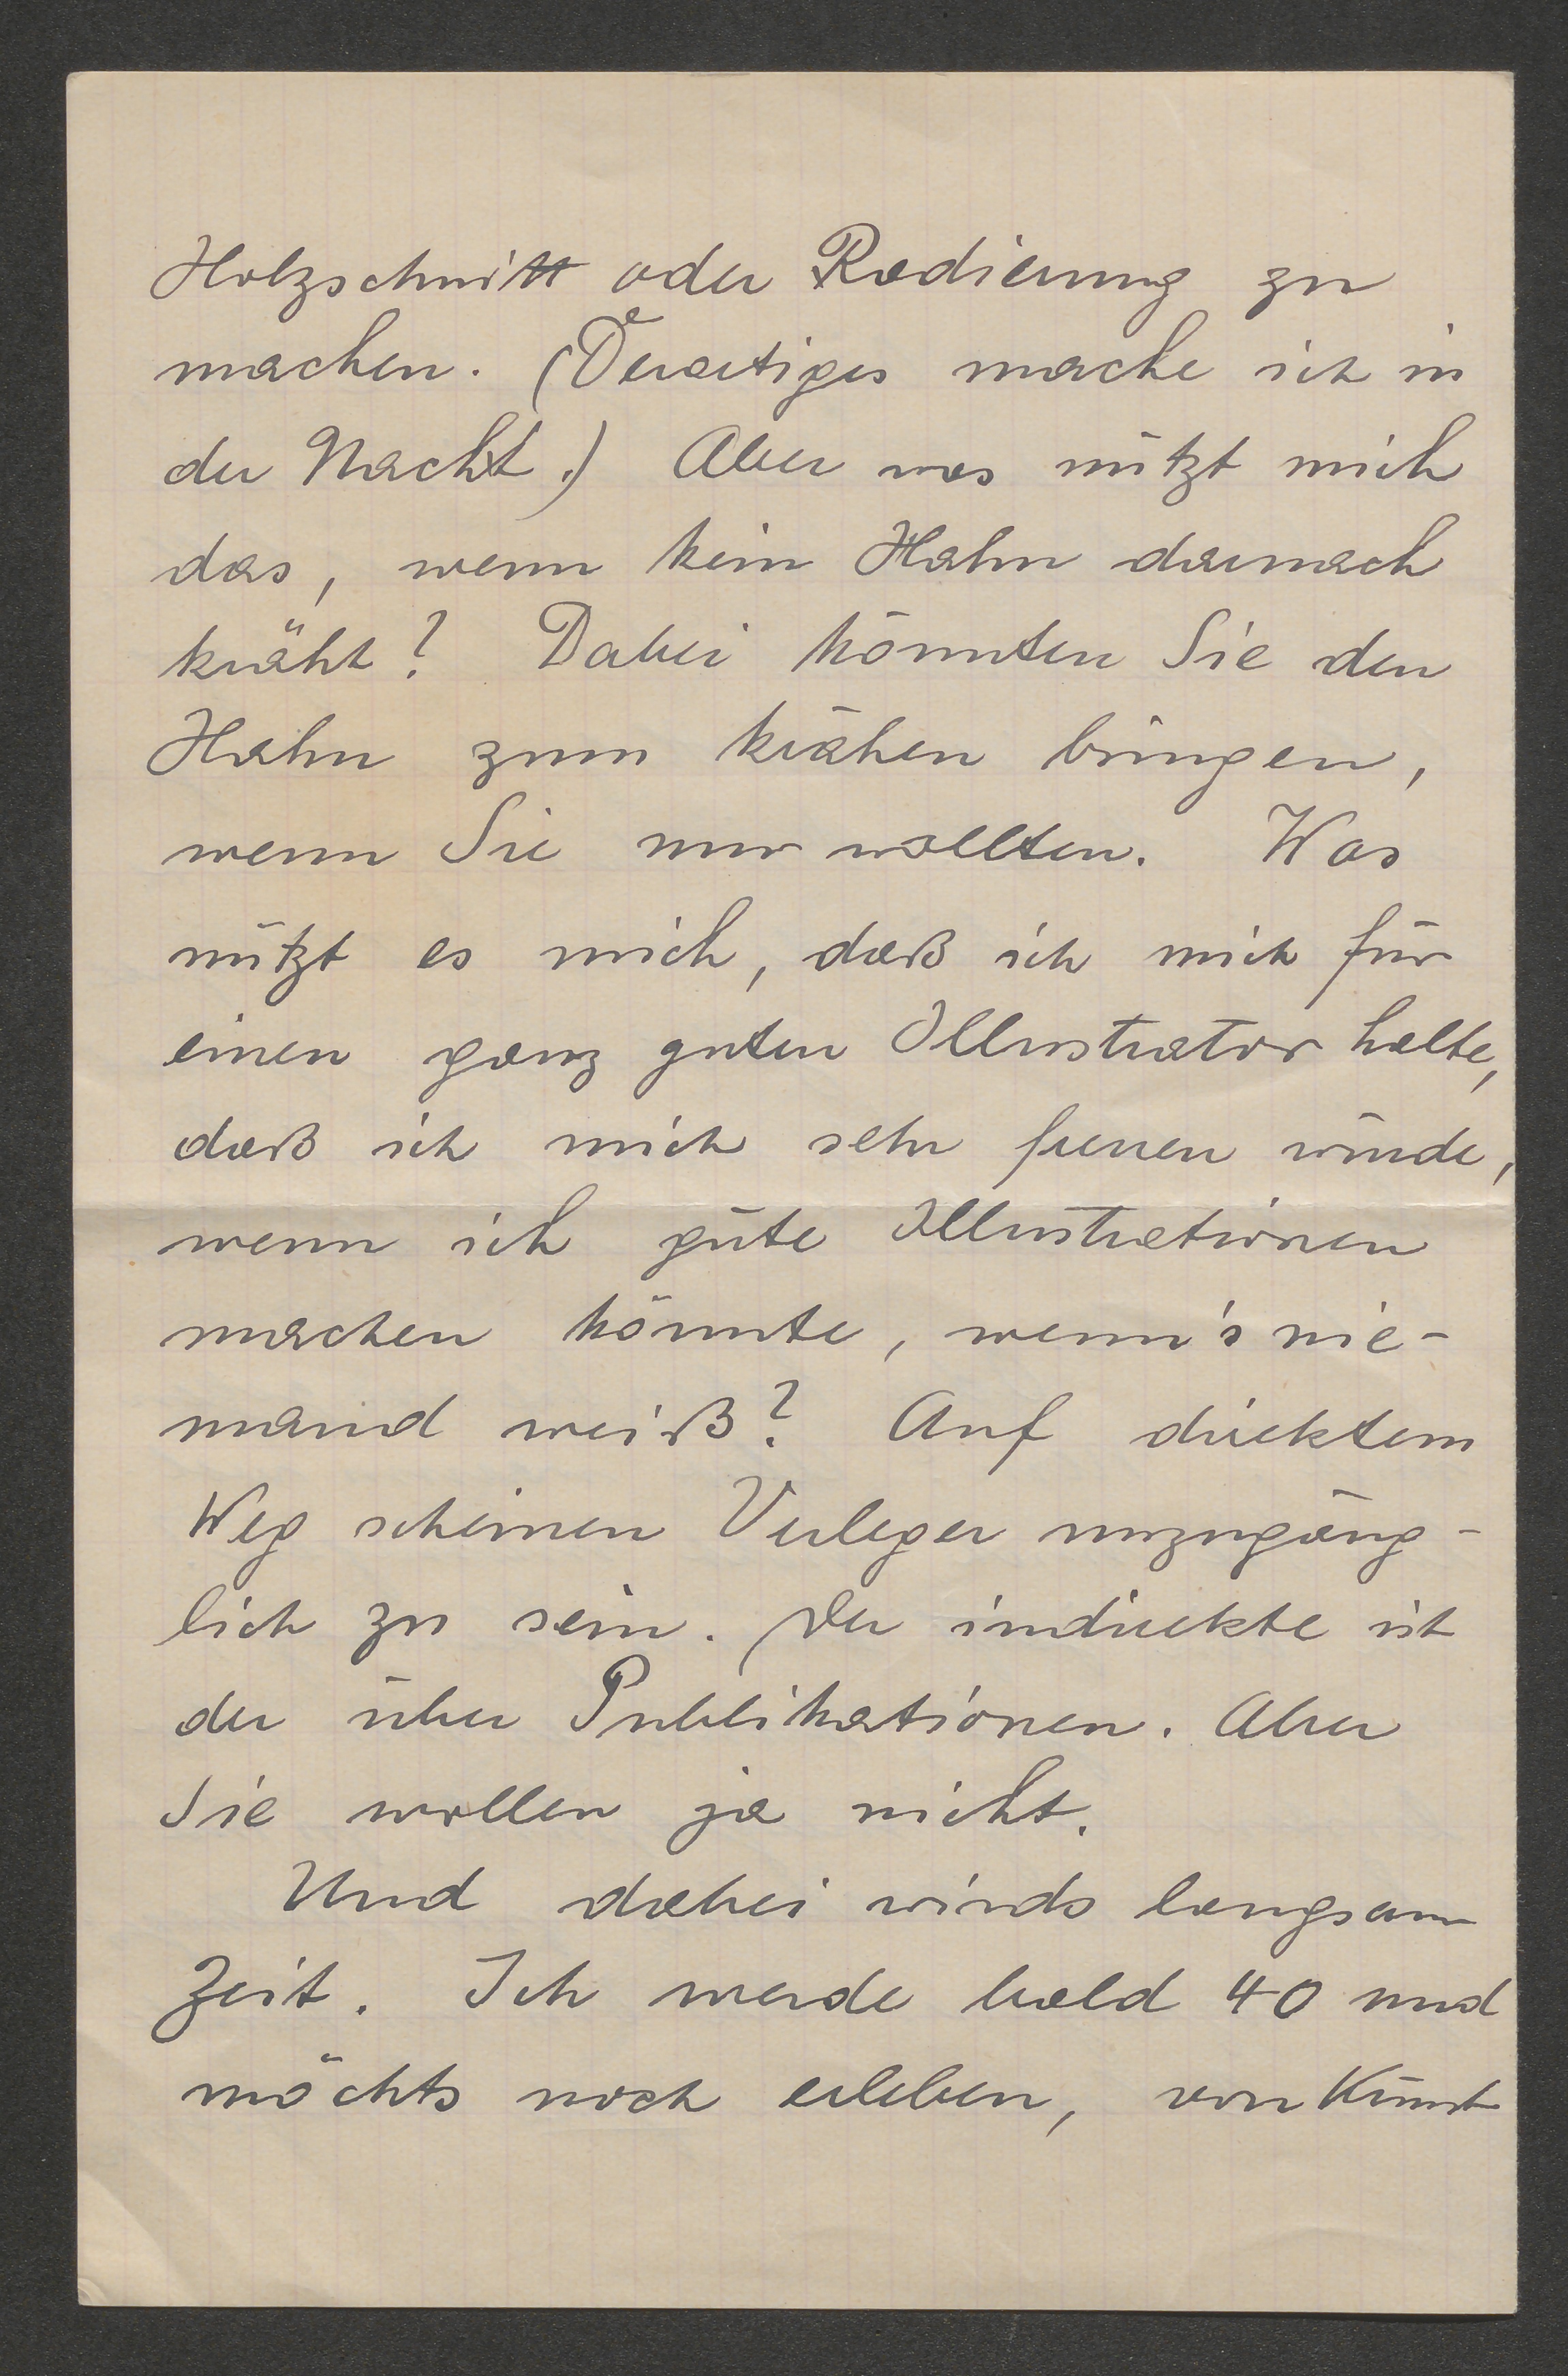 Holzschnitt oder Radierung zu
machen. (Derartiges mache ich in
der Nacht.) Aber was nützt mich
das, wenn kein Hahn darnach
kräht? Dabei könnten Sie den
Hahn zum krähen bringen,
wenn Sie nur wollten. Was
nützt es mich, daß ich mich für
einen ganz guten Illustrator halte,
daß ich mich sehr freuen würde,
wenn ich gute Illustrationen
machen könnte, wenn's nie-
mand weiß? Auf direktem
Weg scheinen Verleger unzugäng-
lich zu sein. Der indirekte ist
der über Publikationen. Aber
Sie wollen ja nicht.
Und dabei wirds langsam
Zeit. Ich werde bald 40 und
möchts noch erleben, von Kunst